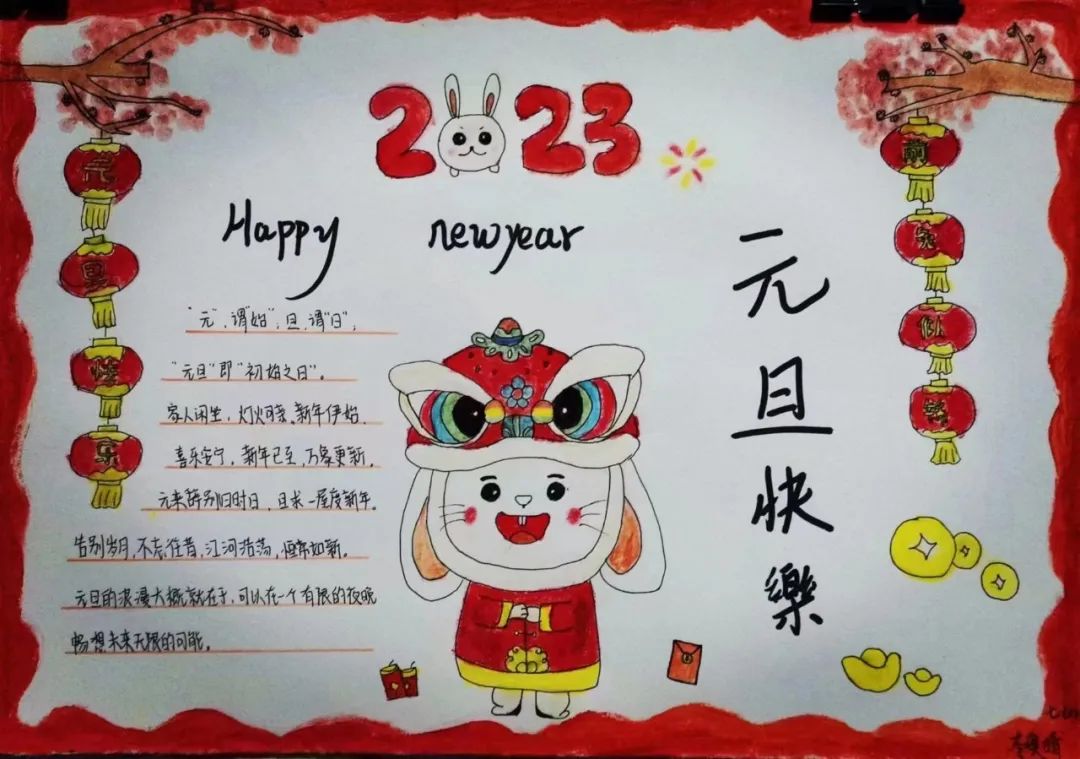 2023
Happy newyear
元旦快樂
元旦快乐
前兔似锦
"元",谓"始",旦,谓"日",
"元旦"即"初始之日"。
家人闲坐,灯火可亲。新年伊始,
喜乐安宁,新年已至,万象更新,
元来辞别旧时日,旦求一屋度新年。
告别岁月,不忘往昔,江河浩荡,恒常如新。
元旦的浪漫大概就在于,可以在一个有限的夜晚
畅想未来无限的可能。